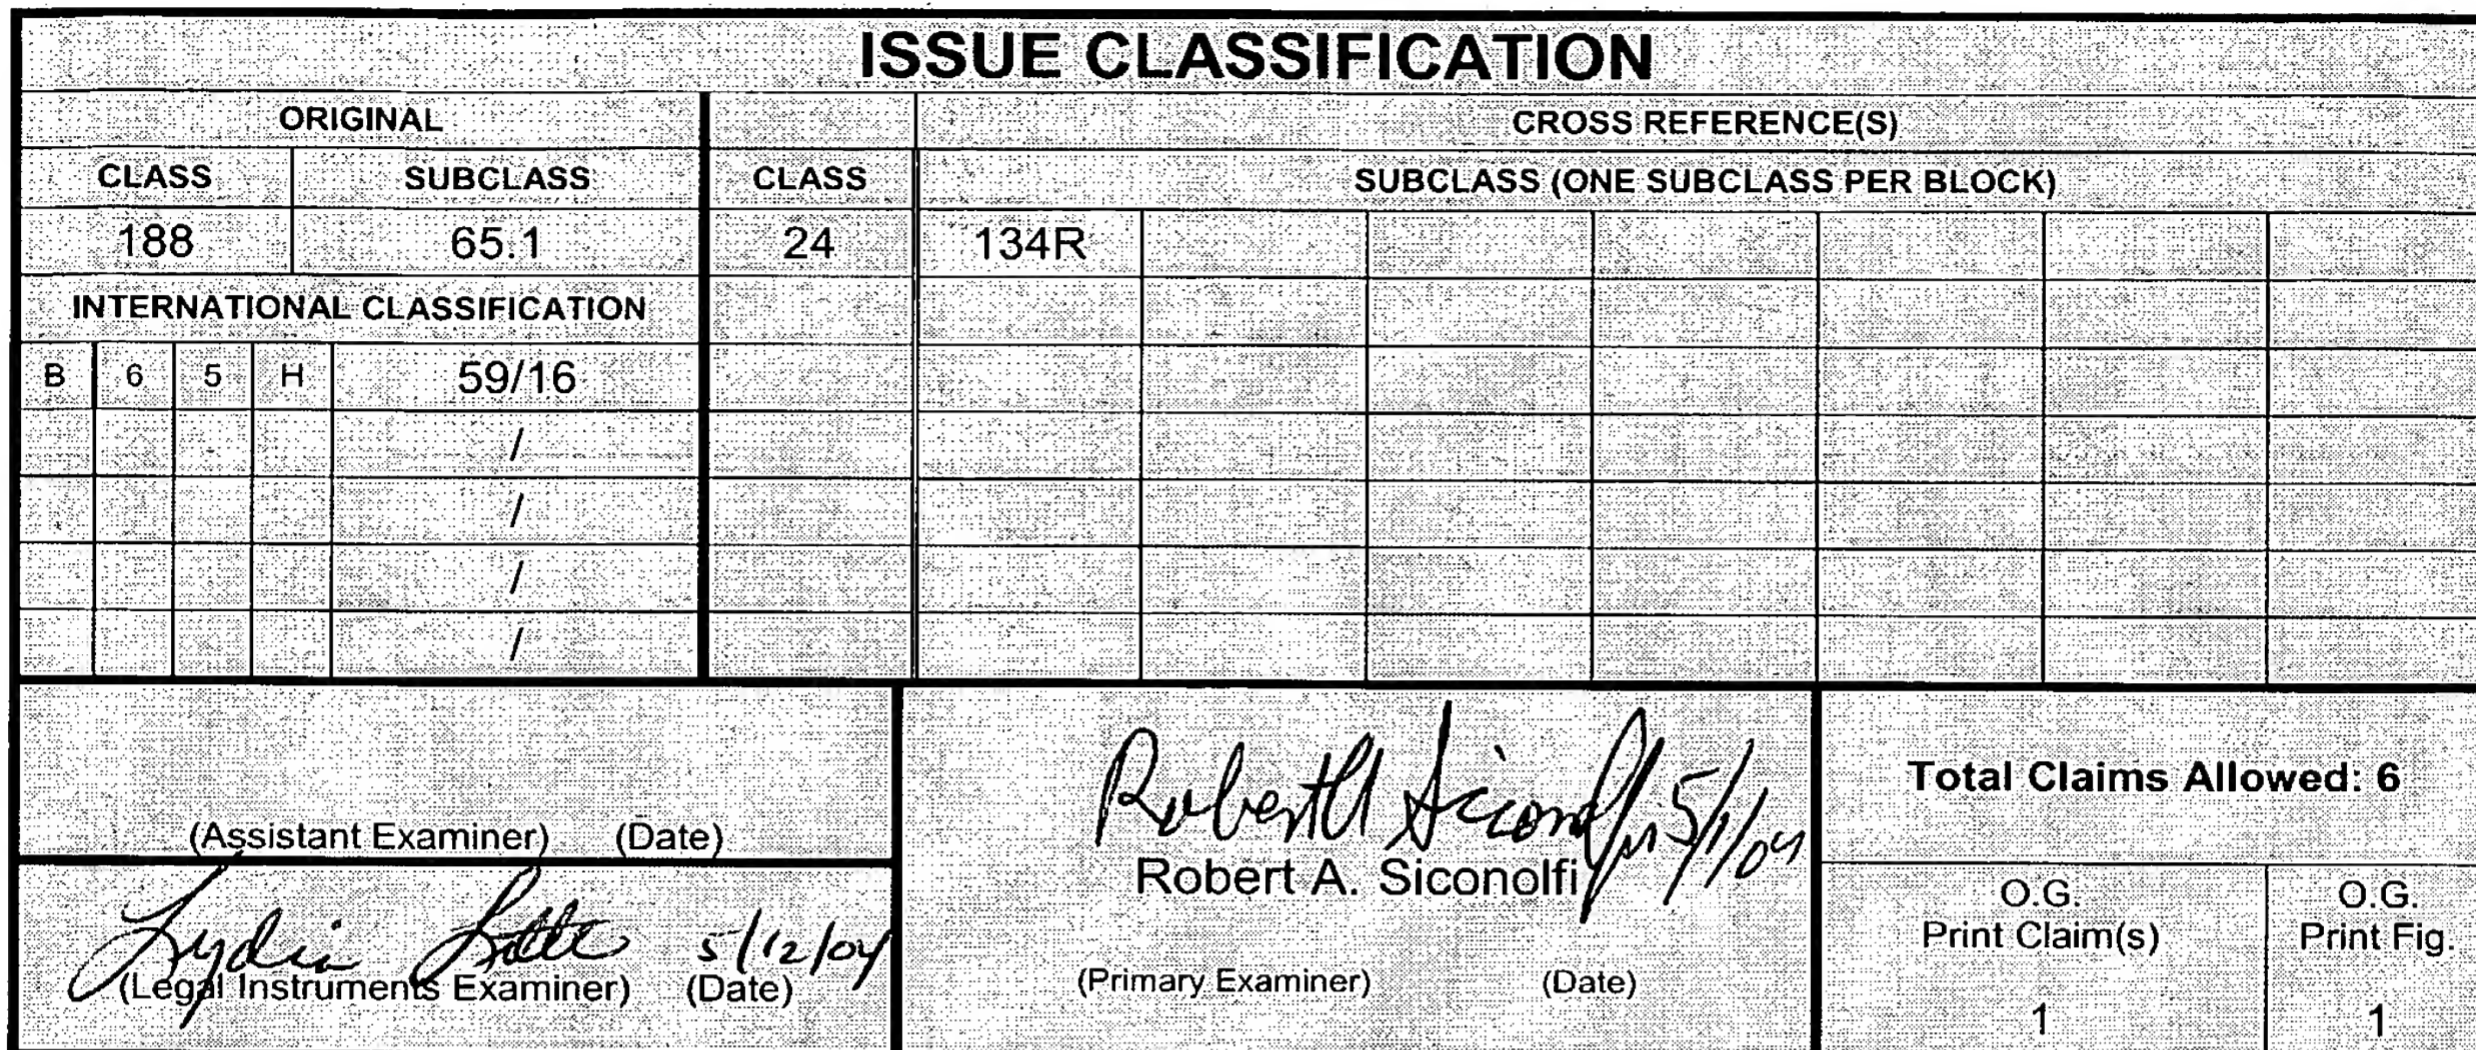 ISSUE CLASSIFICATION
ORIGINAL CROSS REFERENCE(S)
CLASS SUBCLASS CLASS SUBCLASS (ONE SUBCLASS PER BLOCK)
188 65.1 24 134R
INTERNATIONAL CLASSIFICATION
B 6 5 H 59/16
/
/
/
/
(Assistant Examiner) (Date)
Lydia 5/12/04
(Legal Instruments Examiner) (Date)
Robert A Siconolfi
Robert A. Siconolfi
(Primary Examiner) (Date)
Total Claims Allowed: 6
O.G.
Print Claim(s)
1
O.G.
Print Fig.
1